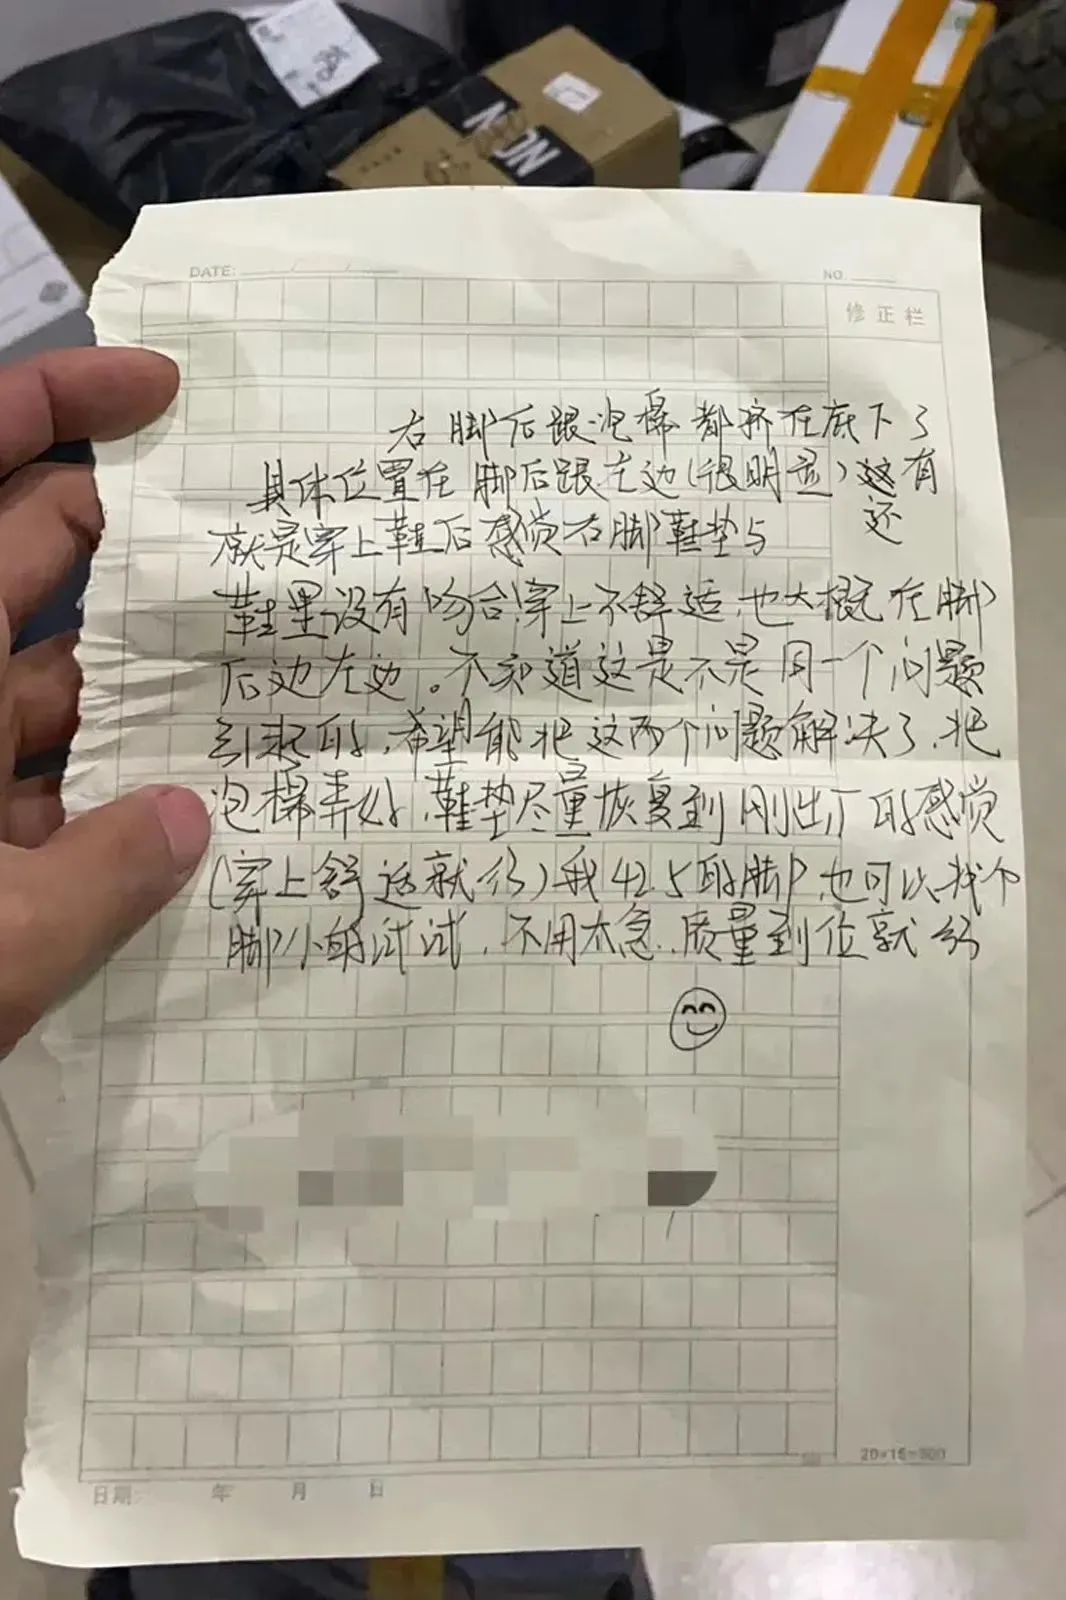 DATE:
NO
修正栏
右脚后跟泡棉都挤在底下了
具体位置在脚后跟左边(很明显)这有
还
就是穿上鞋后感觉右脚鞋垫与
鞋里没有吻合!穿上不舒适,也大概在脚
后边左边。不知道这是不是同一个问题
引起的,希望能把这两个问题解决了,把
泡棉弄好,鞋垫尽量恢复到刚出厂的感觉
(穿上舒适就行)我42.5的脚,也可以找个
脚小的试试,不用太急,质量到位就行
20×15=300
日期: 年 月 日